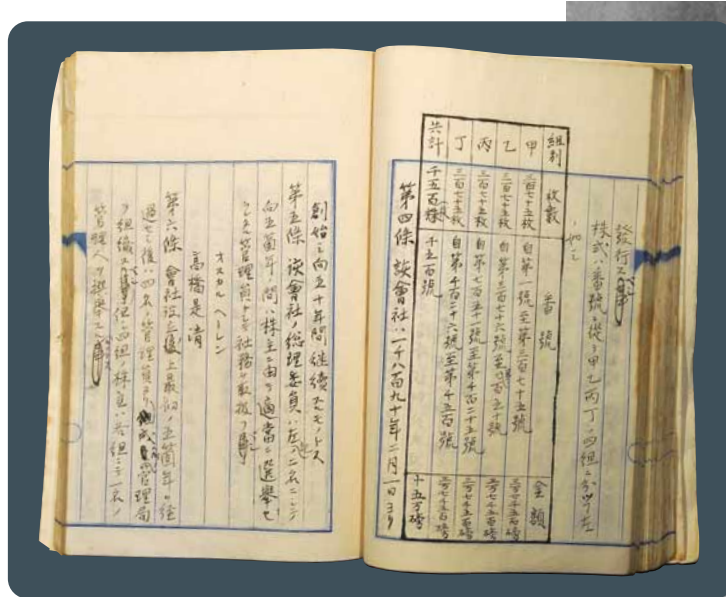 發行ス
株式ハ番號ニ從ヒ甲乙丙丁ノ四組ニ分ツ左
ノ如シ
組別 枚数 番號 金額
甲 三百七十五枚 自第一號至第三百七十五號 三万七千五百磅
乙 三百七十五枚 自第三百七十六號至第七百五十號 三万七千五百磅
丙 三百七十五枚 自第七百五十一號至第千百二十五號 三万七千五百磅
丁 三百七十五枚 自第千百二十六號至第千五百號 三万七千五百磅
共計 千五百 千五百號 十五万磅
第四條 該會社ハ一千八百九十年二月一日ヨリ
創始シ向五十年間継續スルモノトス
第五條 該會社ノ總理委員ハ左ノ二名ニシテ
向五箇年ノ間ハ株主ニ由テ適當ニ選挙セ
管理員トシテ社務ヲ
オスカル ヘーレン
高橋是清
第六條 會社設立後上最初ノ五箇年ヲ経
過セシ後ハ四名ノ管理員ヨリ成ル管理局
ヲ組織ス 四組ノ株主ハ各組ニテ一名ノ
管理人ヲ撰挙ス